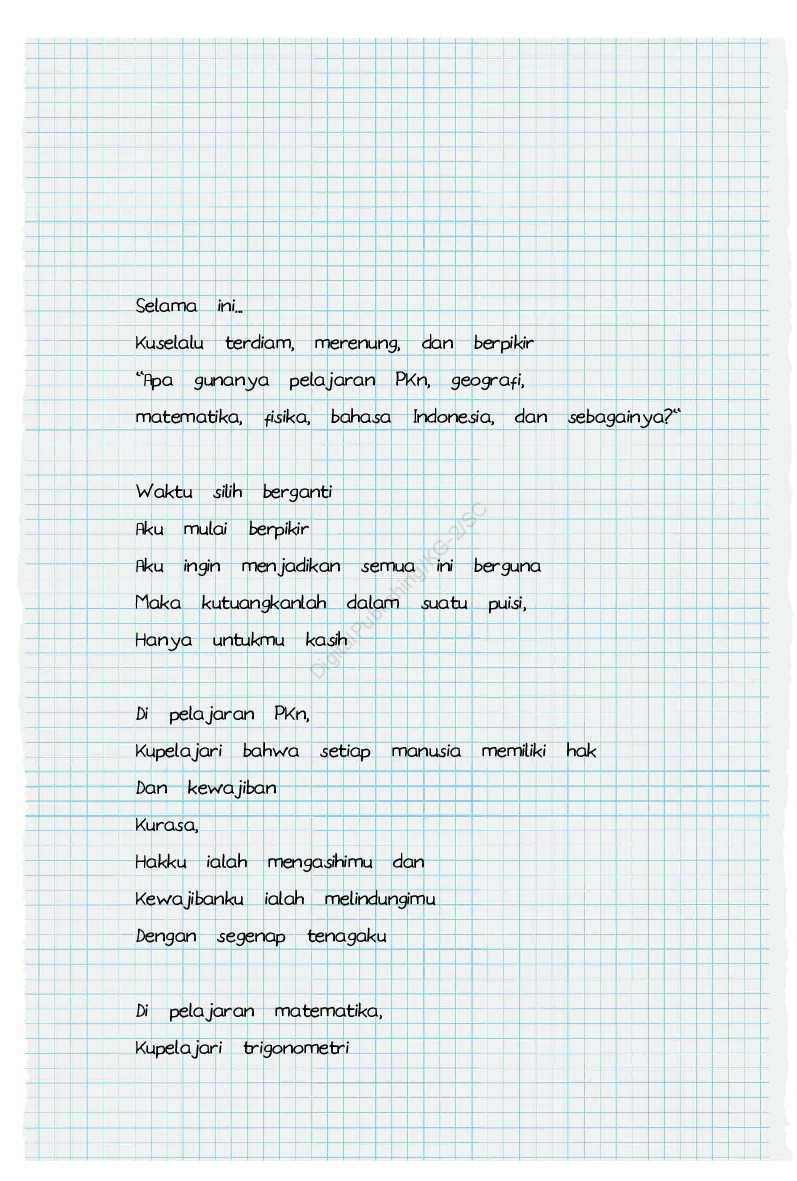 Selama ini...
Kuselalu terdiam, merenung, dan berpikir
“Apa gunanya pelajaran PKn, geografi,
matematika, fisika, bahasa Indonesia, dan sebagainya?“
Waktu silih berganti
Aku mulai berpikir
Aku ingin menjadikan semua ini berguna
Maka kutuangkanlah dalam suatu puisi,
Hanya untukmu kasih
Di pelajaran PKn,
Kupelajari bahwa setiap manusia memiliki hak
Dan kewajiban
Kurasa,
Hakku ialah mengasihimu dan
Kewajibanku ialah melindungimu
Dengan segenap tenagaku
Di pelajaran matematika,
Kupelajari trigonometri
Digital Publishing/KG-2/SC